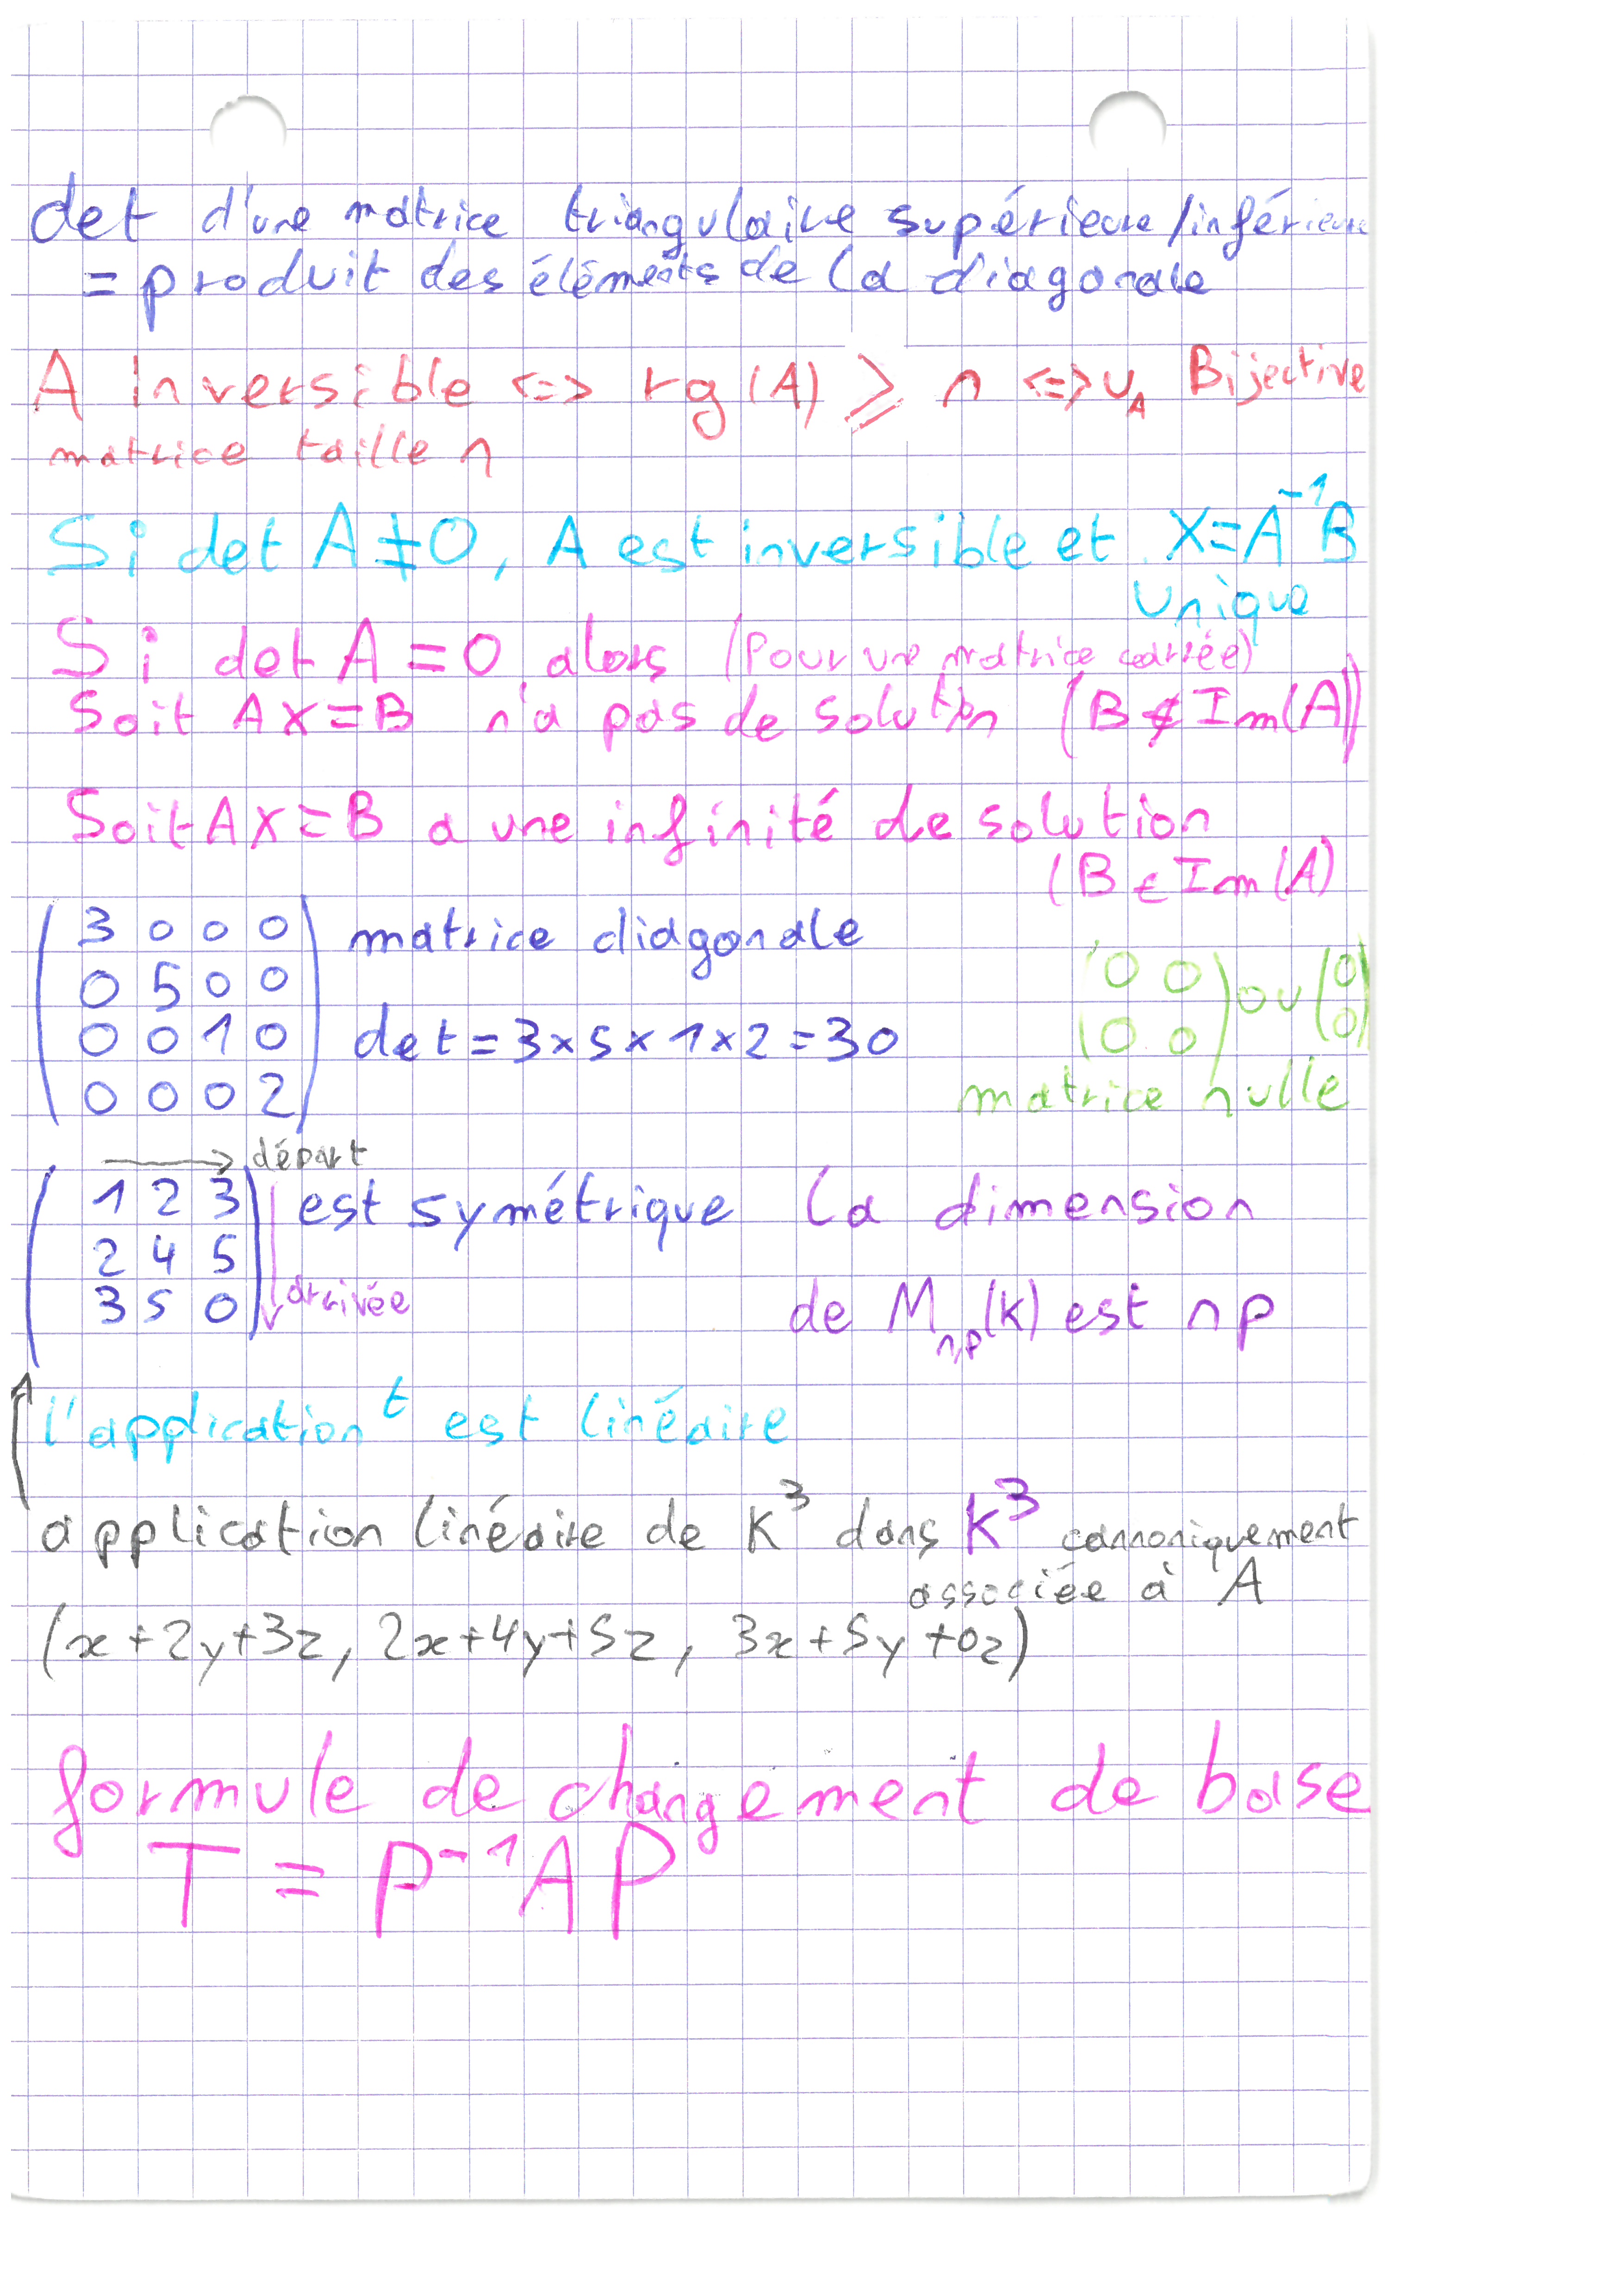 det d'une matrice triangulaire supérieure/inférieure
= produit des éléments de la diagonale
A inversible <=> rg(A) ⩾ n <=> u_A Bijective
matrice taille n
Si det A ≠ 0, A est inversible et X = A⁻¹B
unique
Si det A = 0, alors (Pour une matrice carrée)
Soit AX = B n'a pas de solution (B ∉ Im(A))
Soit AX = B a une infinité de solution
(B ∈ Im(A)
( 3 0 0 0 ) matrice diagonale
0 5 0 0
0 0 1 0 det = 3×5×1×2 = 30
0 0 0 2
( 0 0 ) ou ( 0 )
0 0 0
matrice nulle
→ départ
( 1 2 3 ) est symétrique
2 4 5
3 5 0 arrivée
la dimension
de M_n,p(K) est np
l'application ᵗ est linéaire
application linéaire de K³ dans K³ cannoniquement
associée à A
(x+2y+3z, 2x+4y+5z, 3x+5y+0z)
formule de changement de base
T = P⁻¹AP